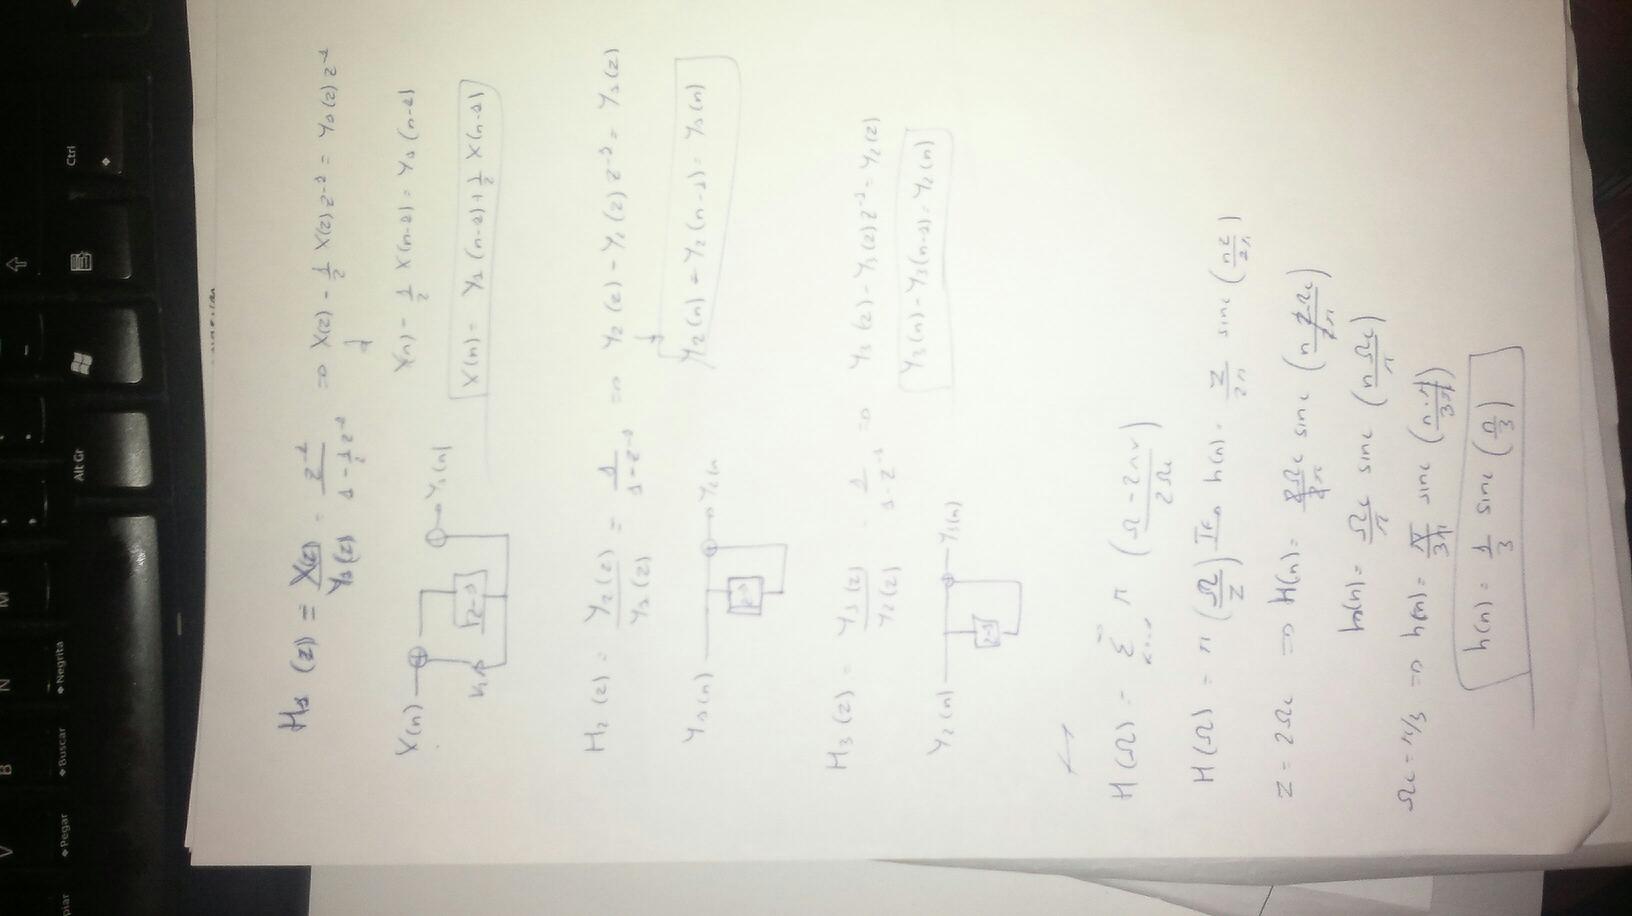 H₁(z) = X(z)/Y₁(z) = z⁻¹/(1 - ½z⁻¹) ⇒ X(z) - ½ X(z) z⁻¹ = Y₁(z) z⁻¹
X(n) - ½ X(n-1) = Y₁(n-1)
X(n) = Y₁(n-1) + ½ X(n-1)
X(n) z⁻¹ Y₁(n)
H₂(z) = Y₂(z)/Y₁(z) = 1/(1 - z⁻¹) ⇒ Y₂(z) - Y₂(z) z⁻¹ = Y₁(z)
Y₂(n) - Y₂(n-1) = Y₁(n)
Y₁(n) z⁻¹ Y₂(n
H₃(z) = Y₃(z)/Y₂(z) = 1/(1 - z⁻¹) ⇒ Y₃(z) - Y₃(z) z⁻¹ = Y₂(z)
Y₃(n) - Y₃(n-1) = Y₂(n)
Y₂(n) z⁻¹ Y₃(n)
H(Ω) = Σ Π ((Ω - 2πk)/(2Ωc))
H(Ω) = Π (Ω/Z) h(n) = Z/2π sinc (nZ/2π)
Z = 2Ωc ⇒ h(n) = 2Ωc/2π sinc (n 2Ωc/2π)
h(n) = Ωc/π sinc (nΩc/π)
Ωc = π/3 ⇒ h(n) = π/3π sinc (n·π/3π)
h(n) = 1/3 sinc (n/3)
Ctrl
Alt Gr
M
N
B
V
Negrita
Buscar
Pegar